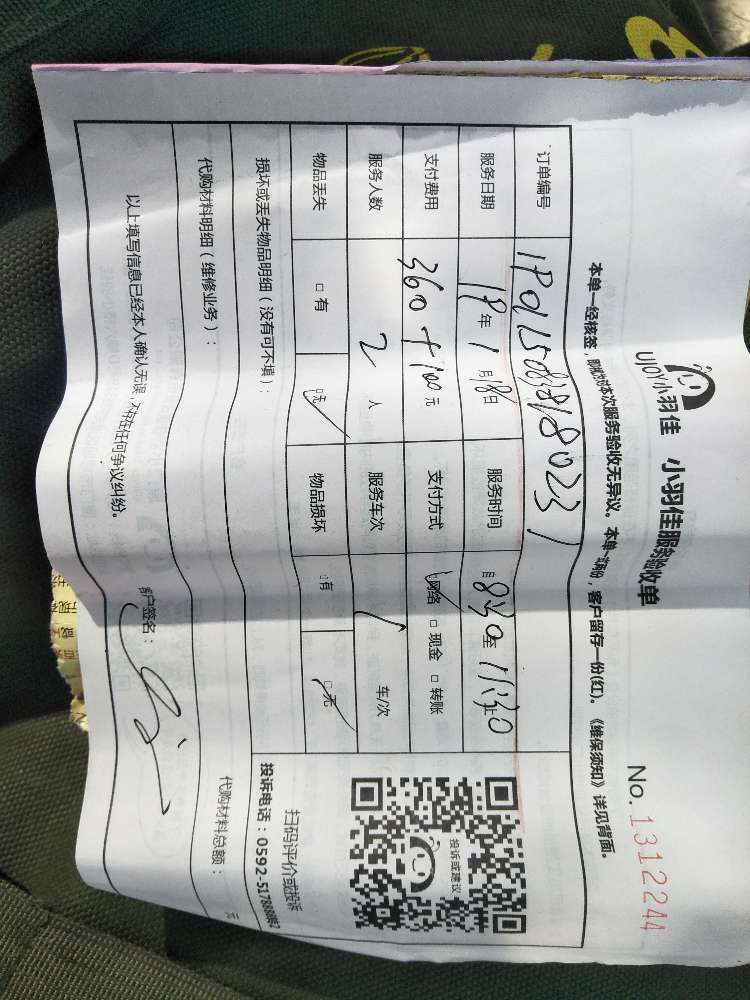 UJOY小羽佳 小羽佳服务验收单
No.1312244
本单一经核签，即视为对本次服务验收无异议。本单一式两份，客户留存一份(红)。《维保须知》详见背面。
订单编号
服务日期 19年1月18日 服务时间 自8:30至11:30止
支付费用 360+100元 支付方式 ☑网络 □现金 □转账
服务人数 2人 服务车次 1车/次
物品丢失 □有 ☑无 物品损坏 □有 ☑无
损坏或丢失物品明细（没有可不填）：
投诉或建议
扫码评价或投诉
投诉电话：0592-5178888
代购材料明细（维修业务）： 代购材料总额： 元
以上填写信息已经本人确认无误，不存在任何争议纠纷。
客户签名：